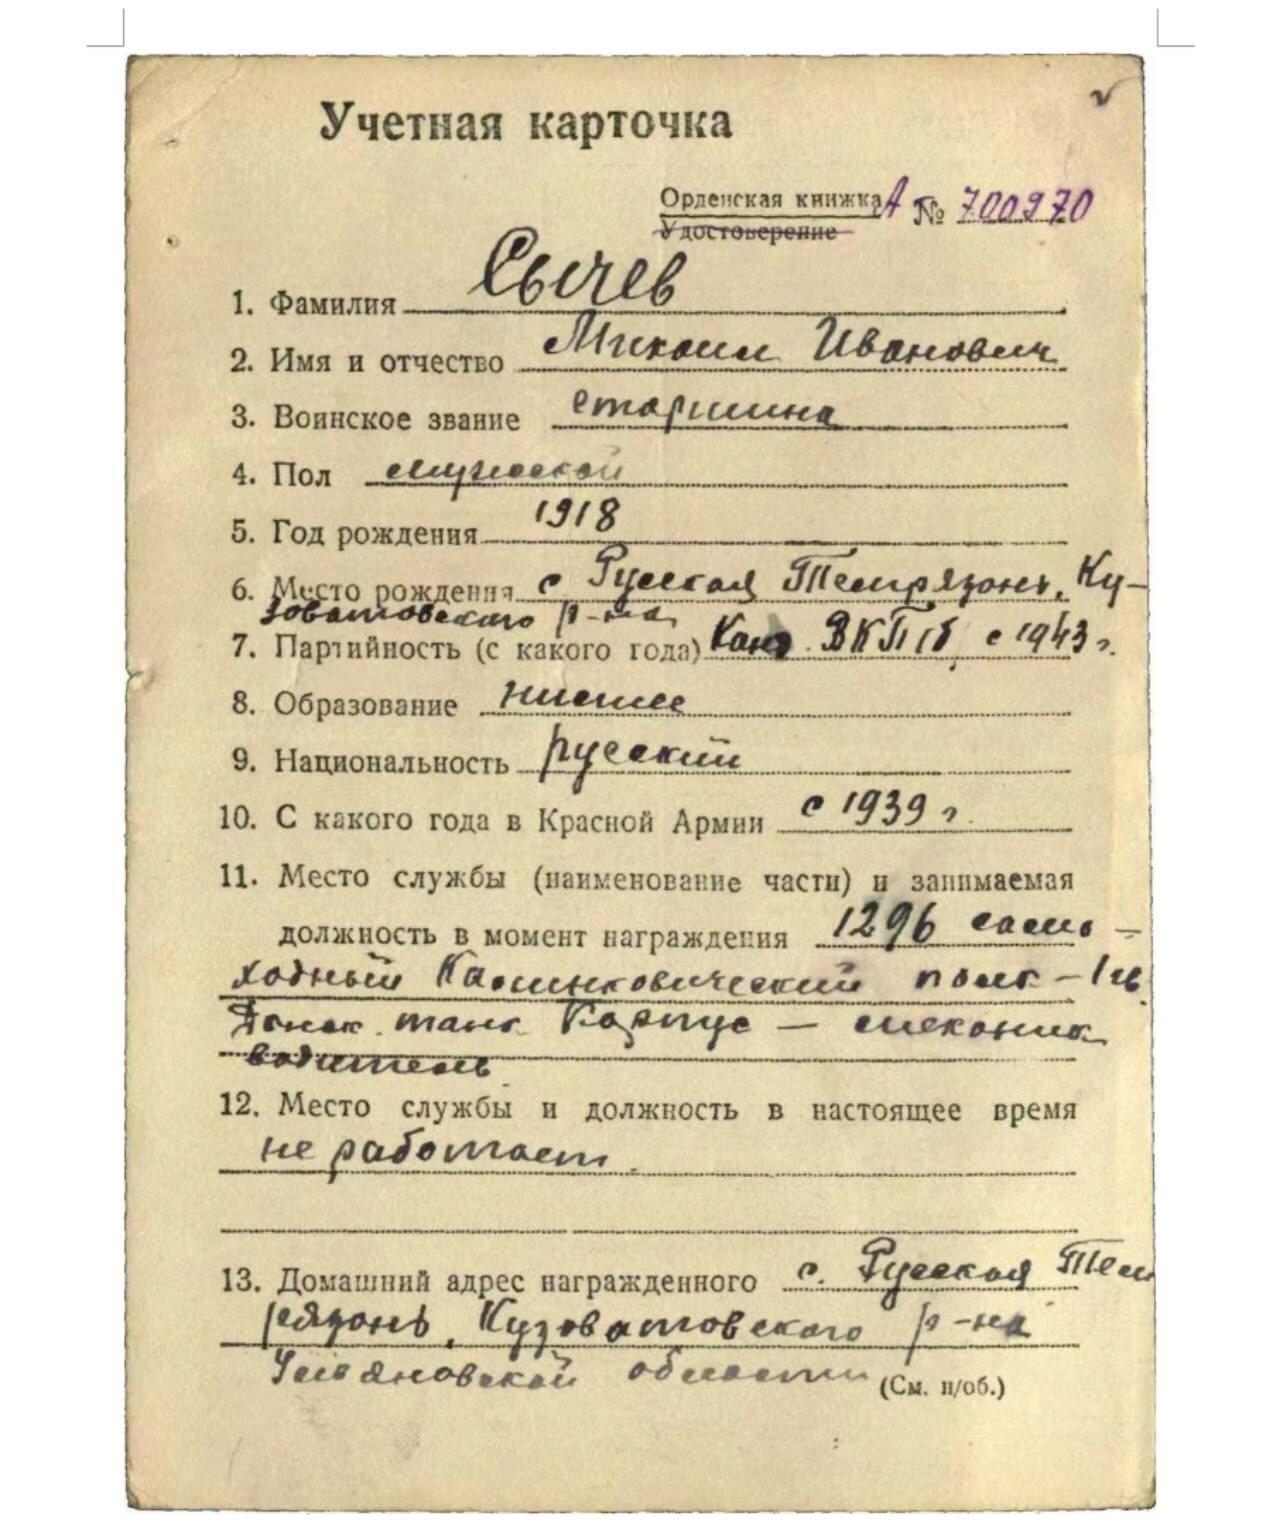 Учетная карточка
Орденская книжка А № 700970
Удостоверение
1. Фамилия Сычев
2. Имя и отчество Михаил Иванович
3. Воинское звание старшина
4. Пол мужской
5. Год рождения 1918
6. Место рождения с Русская Темрязань, Ку-
зоватовского р-на,
7. Партийность (с какого года) Канд. ВКП(б) с 1943 г.
8. Образование низшее
9. Национальность русский
10. С какого года в Красной Армии с 1939 г.
11. Место службы (наименование части) и занимаемая
должность в момент награждения 1296 само-
ходный Калинковический полк - 1 гв.
Донск. танк. Корпус - механик
водитель
12. Место службы и должность в настоящее время
не работает.
13. Домашний адрес награжденного с. Русская Тем
рязань, Кузоватовского р-на
Ульяновской области (См. н/об.)